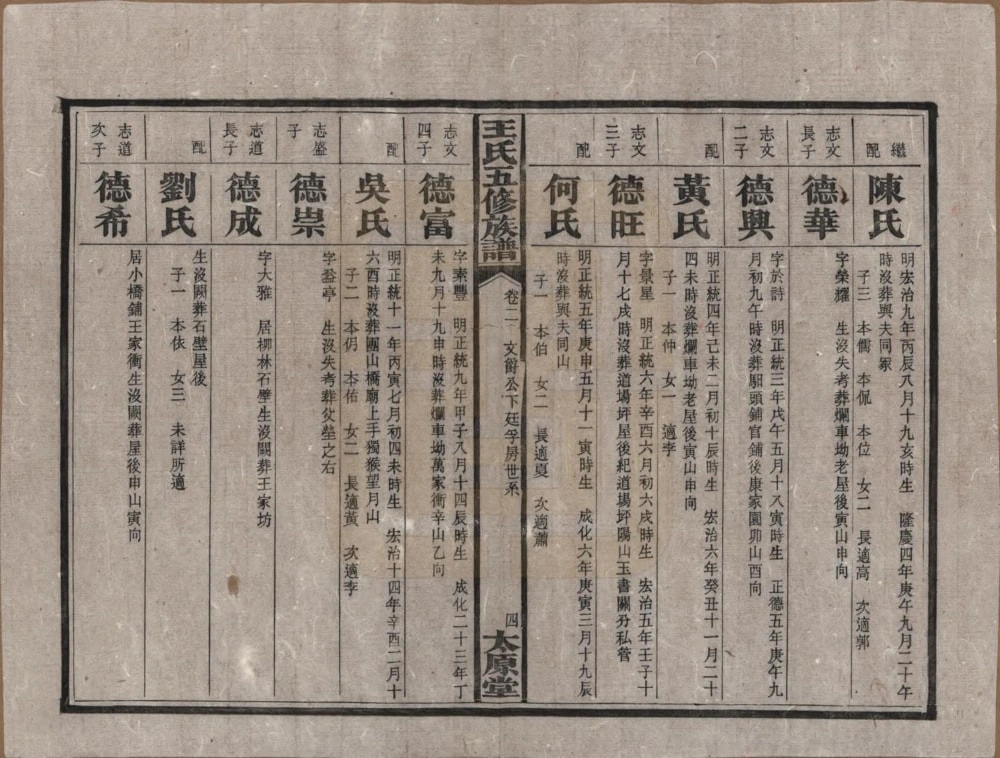 繼配
陳氏
明宏治九年丙辰八月十九亥時生　隆慶四年庚午九月二十午
時沒葬與夫同冢
子三　本儒　本侃　本位　女二　長適高　次適郭
志文長子
德華
字榮耀　生沒失考葬爛車坳老屋後寅山申向
志文二子
德興
字於詩　明正統三年戊午五月十八寅時生　正德五年庚午九
月初九午時沒葬頭鋪官鋪後康家園卯山酉向
配
黃氏
明正統四年己未二月初十辰時生　宏治六年癸丑十一月二十
四未時沒葬爛車坳老屋後寅山申向
子一　本仲　女一　適李
志文三子
德旺
字景星　明正統六年辛酉六月初六戌時生　宏治五年壬子十
月十七戌時沒葬道場坪屋後紀道場坪陽山玉書關分私管
配
何氏
明正統五年庚申五月十一寅時生　成化六年庚寅三月十九辰
時沒葬與夫同山
子一　本伯　女二　長適夏　次適蕭
王氏五修族譜
卷二　文爵公下廷孚房世系
四
太原堂
志文四子
德富
字素豐　明正統九年甲子八月十四辰時生　成化二十三年丁
未九月十九申時沒葬爛車坳萬家衝辛山乙向
配
吳氏
明正統十一年丙寅七月初四未時生　宏治十四年辛酉二月十
六酉時沒葬團山橋廟上手獨猴望月山
子二　本仴　本佑　女二　長適黃　次適李
志盛子
德崇
字益亭　生沒失考葬父塋之右
志道長子
德成
字大雅　居柳林石壁生沒闕葬王家坊
配
劉氏
生沒闕葬石壁屋後
子一　本依　女三　未詳所適
志道次子
德希
居小橋鋪王家衝生沒闕葬屋後申山寅向